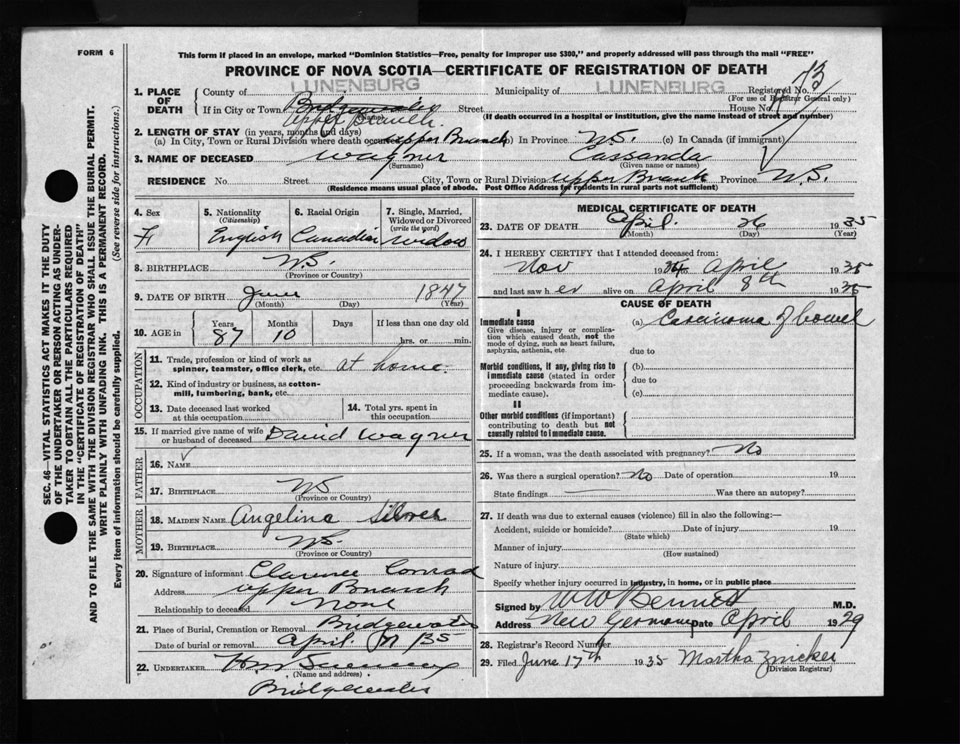 FORM 6
This form if placed in an envelope, marked "Dominion Statistics—Free, penalty for improper use $300," and properly addressed will pass through the mail "FREE"
PROVINCE OF NOVA SCOTIA—CERTIFICATE OF REGISTRATION OF DEATH
1. PLACE OF DEATH
County of LUNENBURG
Municipality of LUNENBURG
Registered No. 73
(For use of Registrar General only)
If in City or Town Bridgewater Street House No.
(Name)
Upper Branch
(If death occurred in a hospital or institution, give the name instead of street and number)
2. LENGTH OF STAY (in years, months and days)
(a) In City, Town or Rural Division where death occurred Upper Branch (b) In Province N.S. (c) In Canada (if immigrant)
3. NAME OF DECEASED Wagner Cassanda
(Surname) (Given name or names)
RESIDENCE No. Street City, Town or Rural Division Upper Branch Province N.S.
(Residence means usual place of abode. Post Office Address for residents in rural parts not sufficient)
4. Sex F
5. Nationality (Citizenship) English
6. Racial Origin Canadian
7. Single, Married, Widowed or Divorced (write the word) Widow
8. BIRTHPLACE N.S.
(Province or Country)
9. DATE OF BIRTH June 1847
(Month) (Day) (Year)
10. AGE in Years 87 Months 10 Days If less than one day old hrs. or min.
OCCUPATION
11. Trade, profession or kind of work as spinner, teamster, office clerk, etc. At home.
12. Kind of industry or business, as cotton-mill, lumbering, bank, etc.
13. Date deceased last worked at this occupation
14. Total yrs. spent in this occupation
15. If married give name of wife or husband of deceased David Wagner
FATHER
16. Name
17. BIRTHPLACE N.S.
(Province or Country)
MOTHER
18. MAIDEN NAME Angelina Silver
19. BIRTHPLACE N.S.
(Province or Country)
20. Signature of informant Clarence Conrad
Address Upper Branch
Relationship to deceased None
21. Place of Burial, Cremation or Removal Bridgewater
Date of burial or removal April
22. UNDERTAKER
(Name and address)
Bridgewater
MEDICAL CERTIFICATE OF DEATH
23. DATE OF DEATH April 26 1935
(Month) (Day) (Year)
24. I HEREBY CERTIFY that I attended deceased from:
Nov 1934 April 1935
and last saw her alive on April 8th 1935
CAUSE OF DEATH
I
Immediate cause
Give disease, injury or complication which caused death, not the mode of dying, such as heart failure, asphyxia, asthenia, etc.
(a) Carcinoma of bowel
due to
Morbid conditions, if any, giving rise to immediate cause (stated in order proceeding backwards from immediate cause).
(b)
due to
(c)
II
Other morbid conditions (if important) contributing to death but not causally related to immediate cause.
25. If a woman, was the death associated with pregnancy? No
26. Was there a surgical operation? No Date of operation 19
State findings Was there an autopsy?
27. If death was due to external causes (violence) fill in also the following:—
Accident, suicide or homicide? Date of injury 19
(State which)
Manner of injury
(How sustained)
Nature of injury
Specify whether injury occurred in industry, in home, or in public place
Signed by W W Bennett M.D.
Address New Germany Date April 1929
28. Registrar's Record Number
29. Filed June 17th 1935 Martha Zwicker
(Division Registrar)
SEC. 46—VITAL STATISTICS ACT MAKES IT THE DUTY
OF THE UNDERTAKER OR PERSON ACTING AS UNDER-
TAKER TO OBTAIN ALL THE PARTICULARS REQUIRED
IN THE "CERTIFICATE OF REGISTRATION OF DEATH"
AND TO FILE THE SAME WITH THE DIVISION REGISTRAR WHO SHALL ISSUE THE BURIAL PERMIT.
WRITE PLAINLY WITH UNFADING INK. THIS IS A PERMANENT RECORD.
Every item of information should be carefully supplied. (See reverse side for instructions.)